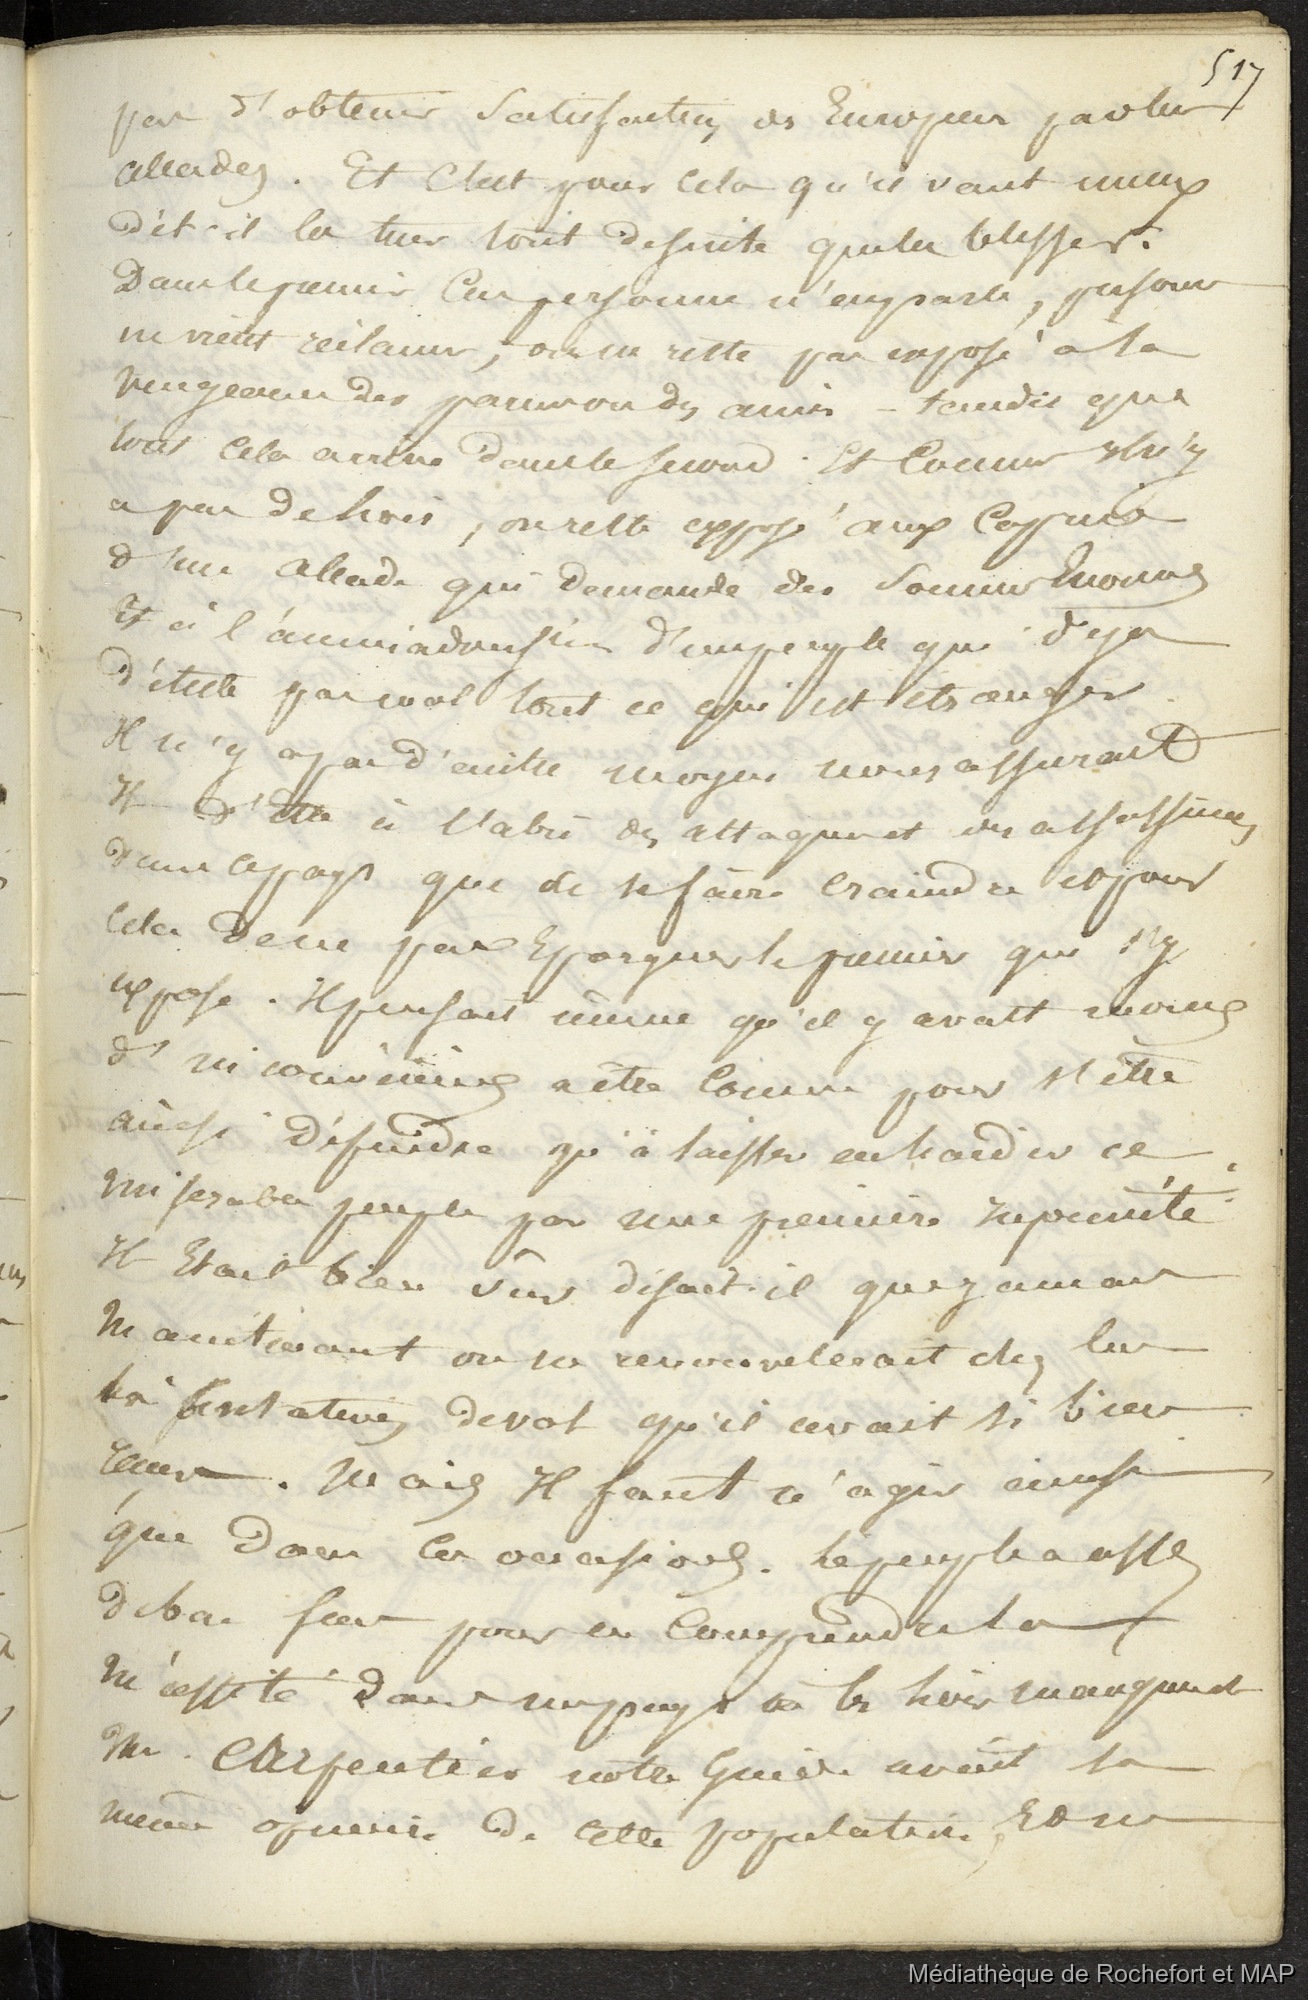 517
pas d'obtenir satisfaction des Européens par les
allcades. Et c'est pour cela qu'il vaut mieux
dit-il les tuer tout de suite que les blesser.
Dans le premier cas personne n'en parle, personne
ne vient réclamer, on ne reste pas exposé à la
vengeance des parens ou des amis - tandis que
tout cela arrive dans le second. Et comme il n'y
a pas de lois, on reste exposé aux caprices
d'une allcade qui demande des sommes énormes
Et à l'animadversion d'un peuple qui déja
déteste pas mal tout ce qui est étranger
Il n'y a pas d'autre moyen nous assurait
Il d'être à l'abri des attaques et des assassinats
dans ce pays que de se faire craindre et pour
cela de ne pas épargner le premier qui s'y
expose. Il pensait même qu'il y avait moins
d'inconvéniens à être connu pour s'être
ainsi défendre qu'à laisser enhardir ce
miserable peuple par une première impunité.
Il Etait bien sûr disait-il que jamais
maintenant on ne renouvelerait chez lui
les tentatives de vol qu'il avait si bien
reçues. Mais Il faut n'agir ainsi
que dans ces occasions. Le peuple a assez
de bon sens pour en comprendre la
nécessité dans un pays où les lois manquent
Mr. Charpentier notre guide avait la
même opinion de cette population, Et ne
Médiathèque de Rochefort et MAP